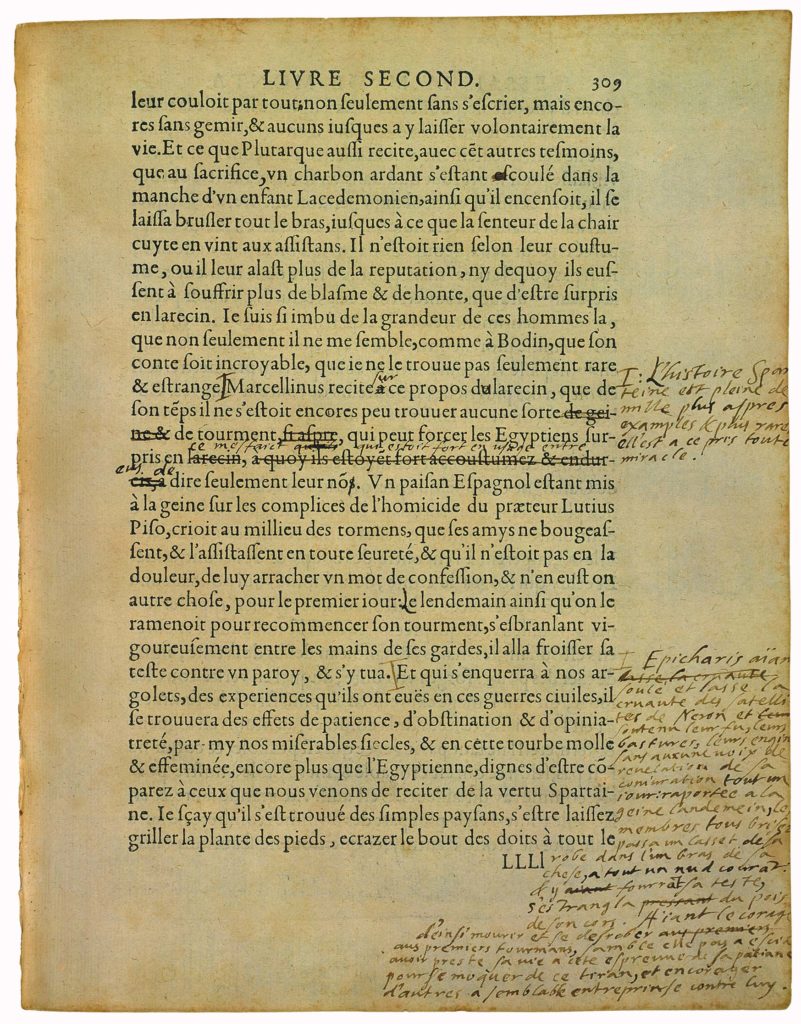 LIVRE SECOND. 309
leur couloit par tout:non ſeulement ſans s'eſcrier, mais enco-
res ſans gemir,& aucuns iuſques a y laiſſer volontairement la
vie.Et ce que Plutarque auſſi recite,auec cẽt autres teſmoins,
que au ſacrifice,vn charbon ardant s'eſtant eſcoulé dans la
manche d'vn enfant Lacedemonien,ainſi qu'il encenſoit, il ſe
laiſſa bruſler tout le bras,iuſques à ce que la ſenteur de la chair
cuyte en vint aux aſſiſtans. Il n'eſtoit rien ſelon leur couſtu-
me, ou il leur alaſt plus de la reputation, ny dequoy ils euſ-
ſent à ſouffrir plus de blaſme & de honte, que d'eſtre ſurpris
en larecin. Ie ſuis ſi imbu de la grandeur de ces hommes la,
que non ſeulement il ne me ſemble,comme à Bodin,que ſon
conte ſoit incroyable, que ie ne le trouue pas ſeulement rare
& eſtrange. Marcellinus recite a ce propos du larecin, que de
sur
ſon tẽps il ne s'eſtoit encores peu trouuer aucune ſorte de gei-
ne & de tourment,ſi aſpre, qui peut forcer les Egyptiens ſur-
ce mesfaict qui estoit fort en usage entre
pris en larecin, a quoy ils eſtoyẽt fort accouſtumez & endur-
eus, de
cis,a dire ſeulement leur nõ. Vn paiſan Eſpagnol eſtant mis
à la geine ſur les complices de l'homicide du præteur Lutius
Piſo,crioit au millieu des tormens, que ſes amys ne bougeaſ-
ſent,& l'aſſiſtaſſent en toute ſeureté,& qu'il n'eſtoit pas en la
douleur,de luy arracher vn mot de confeſſion,& n'en euſt on
autre choſe, pour le premier iour:Le lendemain ainſi qu'on le
ramenoit pour recommencer ſon tourment,s'esbranlant vi-
goureuſement entre les mains de ſes gardes,il alla froiſſer ſa
teſte contre vn paroy, & s'y tua. Et qui s'enquerra à nos ar-
golets,des experiences qu'ils ont euës en ces guerres ciuiles,il
ſe trouuera des effets de patience, d'obſtination & d'opinia-
treté,par-my nos miſerables ſiecles, & en cette tourbe molle
& effeminée,encore plus que l'Egyptienne,dignes d'eſtre cõ-
parez à ceux que nous venons de reciter de la vertu Spartai-
ne. Ie ſçay qu'il s'eſt trouué des ſimples payſans,s'eſtre laiſſez
griller la plante des pieds, ecrazer le bout des doits à tout le
LLLl
L'histoire Spar
teine est pleine de
mille plus aspres
examples & plus rares
elle est a ce pris toute
miracle.
Epicharis aïan
soulé et lasse la
cruaute des satelli
tes de Neron et
soutenu leur fu, leurs
bastures, leurs engins
sans aucune voix de
revelation de sa
coniuration tout un
iour: raportee a la
geine landemein, les
membres tous brisez
passa un lasset de sa
robe dans l'un bras de sa
chese, a tout un nud courat:
& y fourrat sa teste,
s'estrangla du pois
de son cors. Aiant le corage
d'einsi mourir et se desrober
aus premiers tourmans, samble elle pas a escia
avoir preste sa vie a cete espreuve de sa patiance
pour se moquer de ce tiran, et encorager
d'autres a semblable entreprinse contre luy.